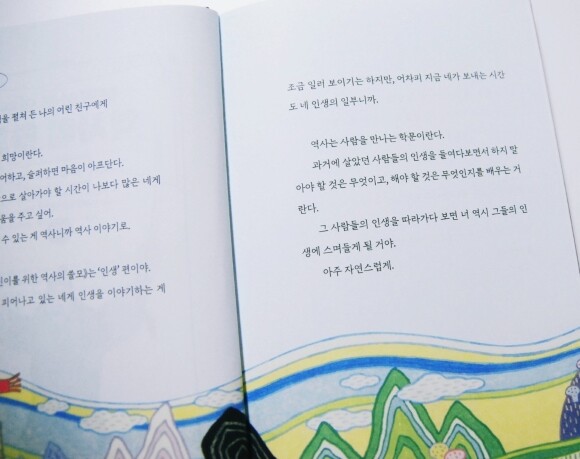 을 펼쳐 든 나의 어린 친구에게
희망이란다.
어하고, 슬퍼하면 마음이 아프단다.
으로 살아가야 할 시간이 나보다 많은 네게
움을 주고 싶어.
수 있는 게 역사니까 역사 이야기로.
린이를 위한 역사의 쓸모》는 ‘인생’ 편이야.
피어나고 있는 네게 인생을 이야기하는 게
조금 일러 보이기는 하지만, 어차피 지금 네가 보내는 시간
도 네 인생의 일부니까.
역사는 사람을 만나는 학문이란다.
과거에 살았던 사람들의 인생을 들여다보면서 하지 말
아야 할 것은 무엇이고, 해야 할 것은 무엇인지를 배우는 거
란다.
그 사람들의 인생을 따라가다 보면 너 역시 그들의 인
생에 스며들게 될 거야.
아주 자연스럽게.